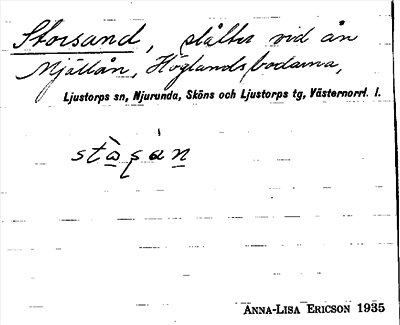 Storsand, slåtter vid ån
Mjällån, Höglandsbodarna,
Ljustorps sn, Njurunda, Sköns och Ljustorps tg, Västernorrl. l.
ANNA-LISA ERICSON 1935